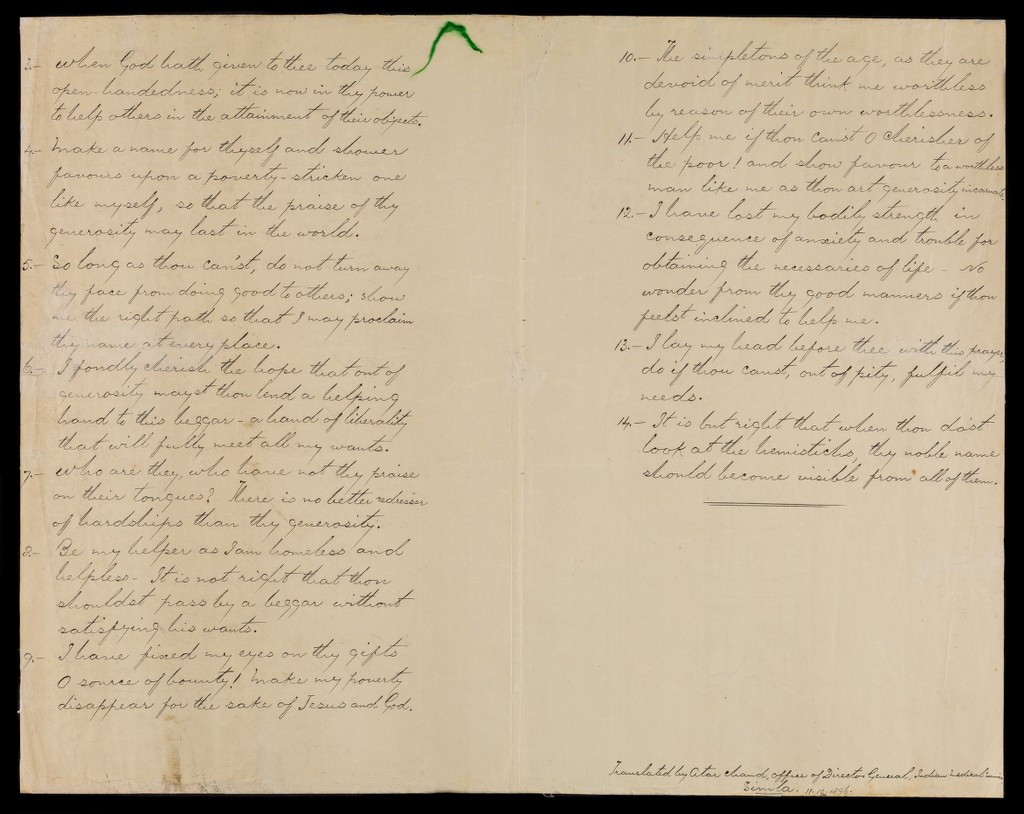 3.- When God hath given to thee today this
open-handedness; it is now in thy power
to help others in the attainment of their objects.
4.- Make a name for thyself and shower
favours upon a poverty-stricken one
like myself, so that the praise of thy
generosity may last in the world.
5.- So long as thou can'st, do not turn away
thy face from doing good to others; show
me the right path so that I may proclaim
thy name at every place.
6.- I fondly cherish the hope that out of
generosity mayst thou lend a helping
hand to this beggar - a hand of liberality
that will fully meet all my wants.
7.- Who are they, who have not thy praise
on their tongues? There is no better redresser
of hardships than thy generosity.
8.- Be my helper as I am homeless and
helpless - It is not right that thou
shouldst pass by a beggar without
satisfying his wants.
9.- I have fixed my eyes on thy gifts
O source of bounty! Make my poverty
disappear for the sake of Jesus and God.
10.- The simpletons of the age, as they are
devoid of merit think me worthless
by reason of their own worthlessness.
11.- Help me if thou canst O Cherisher of
the poor! and show favour to a worthless
man like me as thou art generosity incarnate.
12.- I have lost my bodily strength in
consequence of anxiety and trouble for
obtaining the necessaries of life - No
wonder from thy good manners if thou
feelst inclined to help me.
13.- I lay my head before thee with this prayer,
do if thou canst, out of pity, fulfil my
needs.
14.- It is but right that when thou dost
look at the hemistichs, thy noble name
should become visible from all of them.
Translated by Atar Chand, office of Director General, Indian Medical Service
Simla. 11-10-